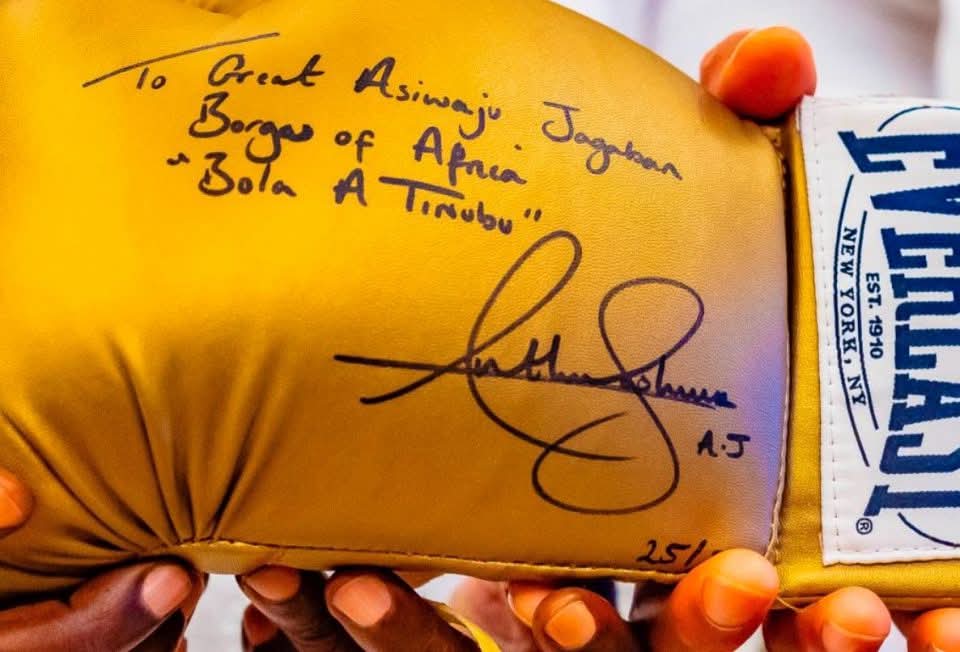 To Great Asiwaju Jagaban
Borgu of Africa
"Bola A Tinubu"
Anthony Joshua
A.J
25/
EVERLAST
EST. 1910
NEW YORK, NY
®